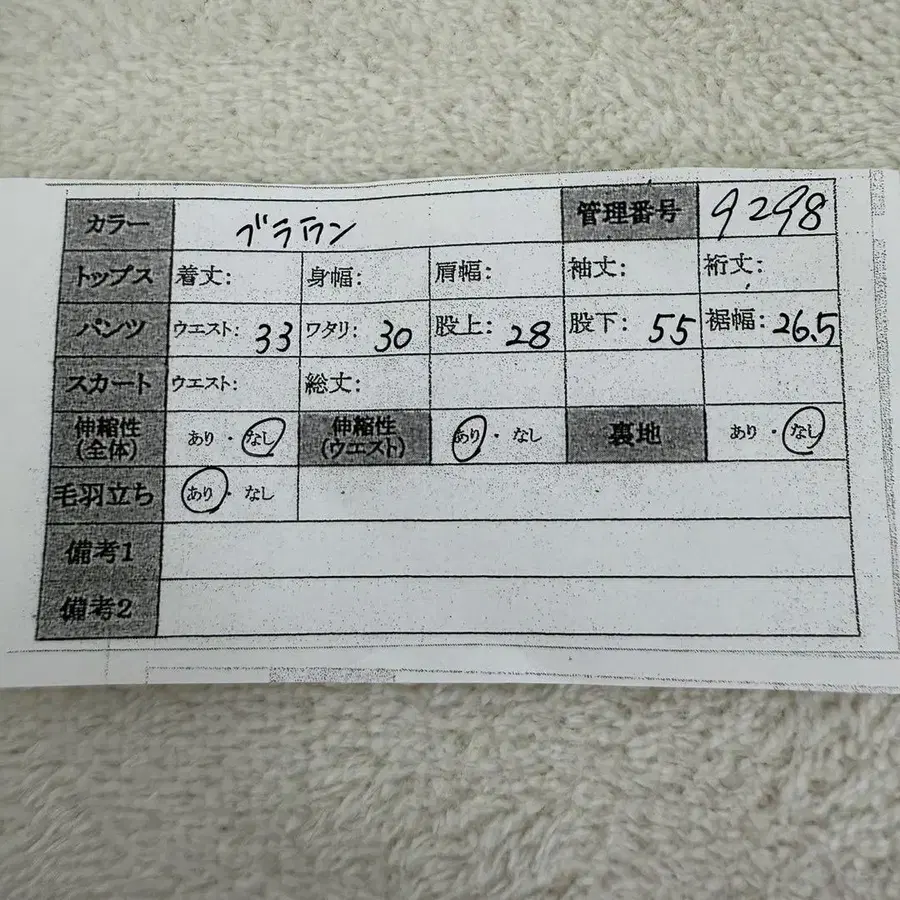 カラー ブラウン 管理番号 9298
トップス 着丈: 身幅: 肩幅: 袖丈: 裄丈:
パンツ ウエスト: 33 ワタリ: 30 股上: 28 股下: 55 裾幅: 26.5
スカート ウエスト: 総丈:
伸縮性 (全体) あり・なし 伸縮性 (ウエスト) あり・なし 裏地 あり・なし
毛羽立ち あり・なし
備考1
備考2